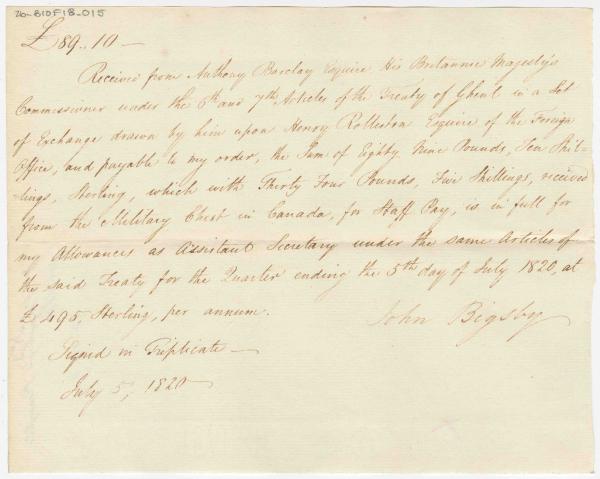 26-B10F18-015
£89..10—
Received from Anthony Barclay Esquire His Britannic Majesty's
Commissioner under the 6th and 7th Articles of the Treaty of Ghent in a Set
of Exchange drawn by him upon Henry Rolleston Esquire of the Foreign
Office, and payable to my order, the Sum of Eighty Nine Pounds, Ten Shil-
lings, Sterling, which with Thirty Four Pounds, Five Shillings, received
from the Military Chest in Canada, for Staff Pay, is in full for
my Allowances as Assistant Secretary under the same Articles of
the said Treaty for the Quarter ending the 5th day of July 1820, at
£495 Sterling, per annum.
John Bigsby
Signed in Triplicate—
July 5, 1820—